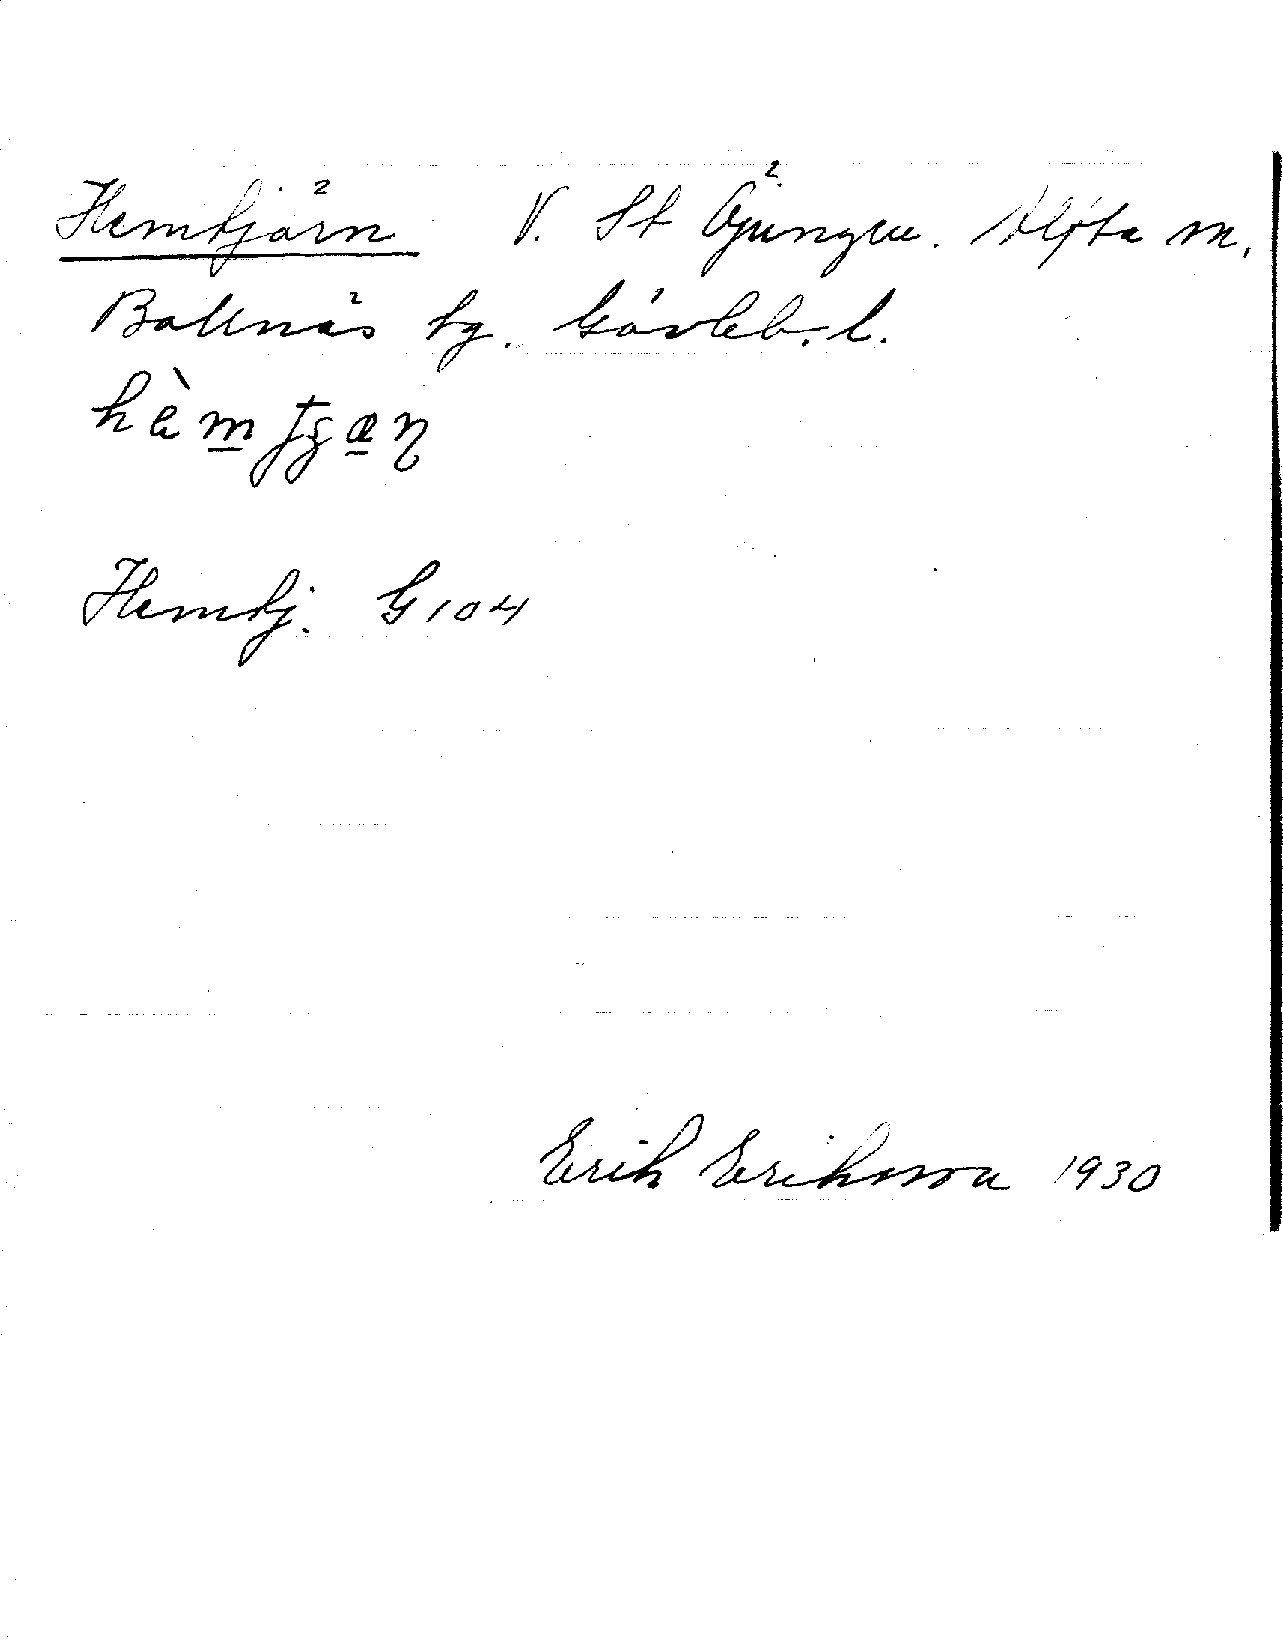 Hemtjärn V. St Öjungen. Alfta m.
Bollnäs tg. Gävleb. l.
hèm
Hemtj. G 104
Erik Eriksson 1930